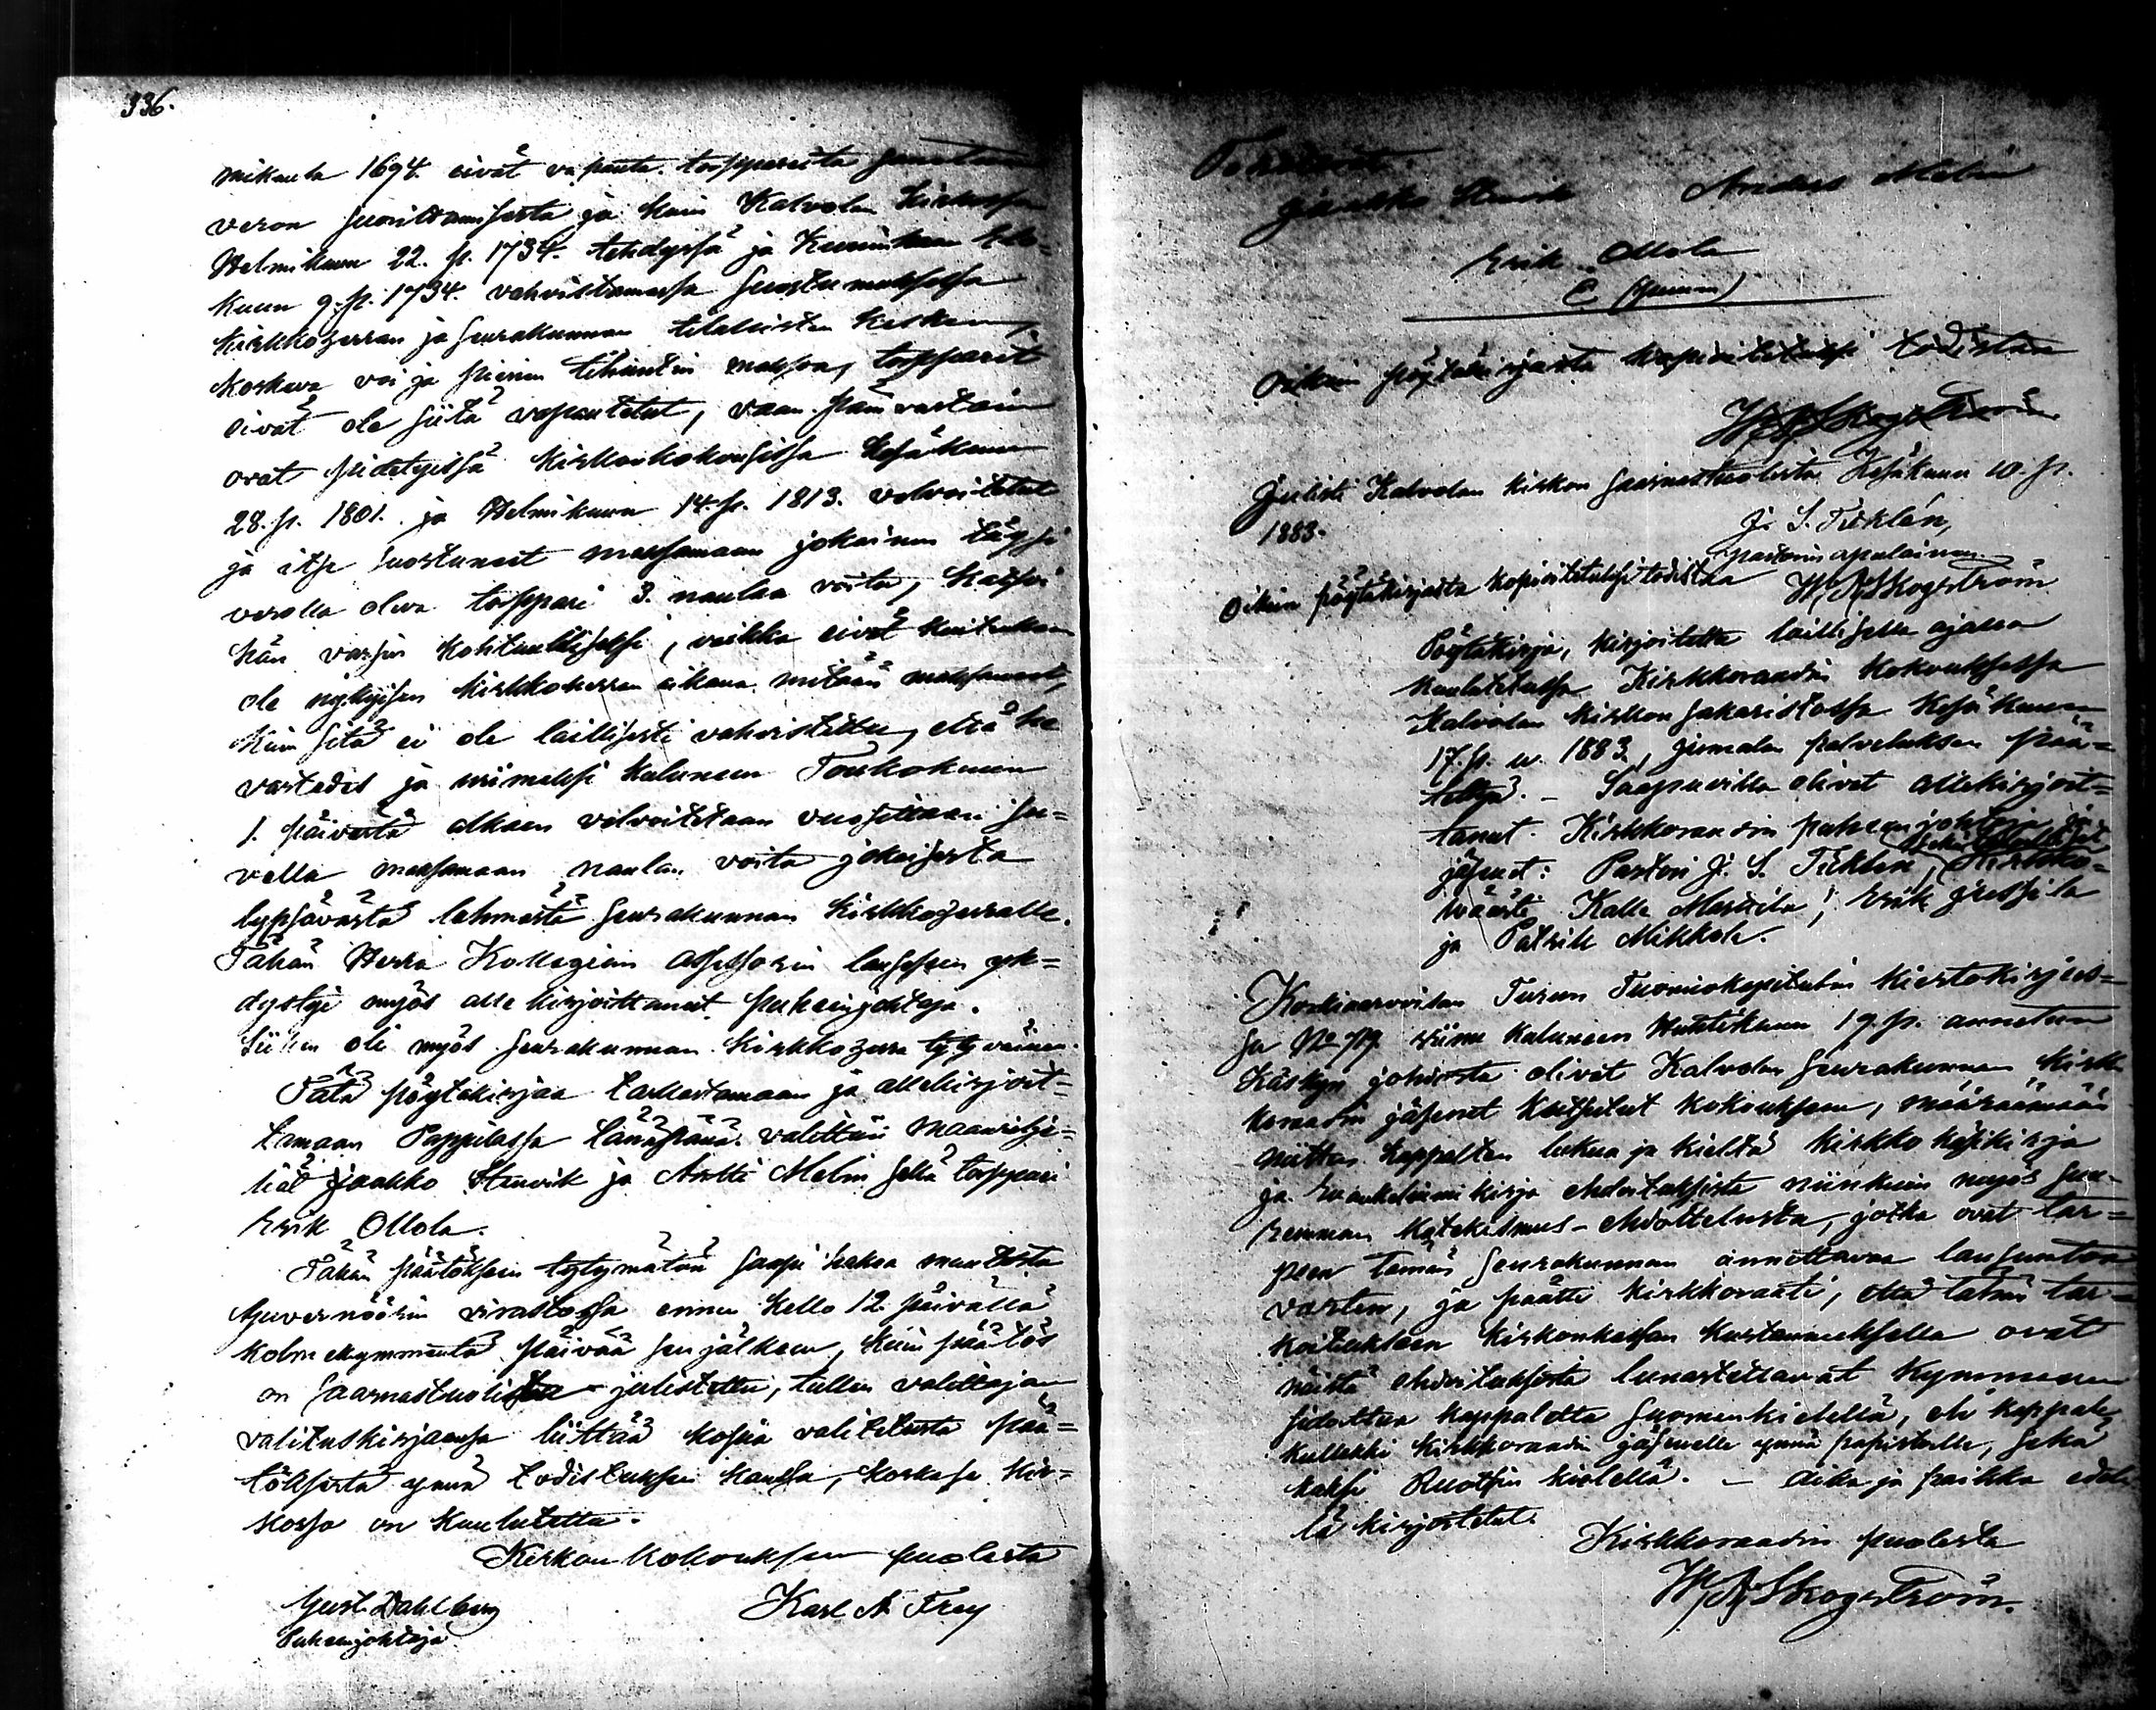 336.
mikuuta 1694. eivät vapauta torppareita saman
veron suorittamisesta ja kuin Kalvolan Kirkossa
Helmikuun 22. p. 1734. tehdyssä ja Kuninkaan
kuun 9. p. 1734. vahvistamassa suostumuksessa
Kirkkoherran ja seurakunnan tilallisten kesken,
koskeva voi ja pienen tihuntin maksoa, torpparit
eivät ole siitä vapautetut, vaan päin vastoin
ovat pidetyissä Kirkonkokouksissa Kesäkuun
28. p. 1801. ja Helmikuun 14. p. 1813. velvoitetut
ja itse suostuneet maksamaan jokainen täysi
verolla oleva torppari 3. naulaa voita, katsoi
hän varsin kohtuulliseksi, vaikka eivät kuitenkaan
ole nykyisen Kirkkoherran aikana mitään maksaneet,
kuin sitä ei ole laillisesti vahvistettu, että he
vastedes ja viimeksi kuluneen Toukokuun
1. päivästä alkaen velvoitetaan vuosittain su=
vella maksamaan naulan voita jokaisesta
lypsävästä lehmästä seurakunnan Kirkkoherralle.
Tähän Herra Kollegian assessorin lauseseen yh=
dystyi myös allekirjoittanut puheenjohtaja.
Siihen oli myös seurakunnan Kirkkoherra tytyväinen.
Tätä pöytäkirjaa tarkastamaan ja allekirjoit=
tamaan Pappilassa tänäpänä valittiin maanvilje=
liät Jaakko Stenvik ja Antti Melin sekä torppari
Erik Ollola.
Tähän päätökseen tytymätön saapi hakea muutosta
Guvernöörin virastossa ennen kello 12 päivällä
kolmekymmentä päivää sen jälkeen, kuin päätös
on saarnastuolista julistettu, tullen valittajan
valituskirjaansa liittää kopia valitetusta pää=
töksestä ynnä todistuksen kanssa, koska se Kir=
kossa on kuulutettu.
Kirkonkokouksen puolesta
Gust. Dahlberg Karl A. Frey
Puheenjohtaja
Jaakko Stenvik Anders Melin
Erik Ollola
(puumm.)
Oikein pöytäkirjasta kopioitetuksi todistaa
W. A. Skogström
Julisti Kalvolan kirkon saarnastuolista Kesäkuun 10. p.
1883. J. S. Ticklén,
pastorin apulainen.
Oikein pöytäkirjasta kopioitetuksi todistaa W. A. Skogström
Pöytäkirja, kirjoitettu laillisella ajalla
kuulutetussa Kirkkoraadin kokouksessa
Kalvolan Kirkon sakaristossa Kesäkuun
17. p. v. 1883, jumalan palveluksen pää=
tettyä. – Saapuvilla olivat allekirjoit=
tanut Kirkkoraadin puheenjohtaja ja
jäsenet: Pastori J. S. Ticklén, Kirkko=
väärti Kalle Marttila, Erik Jussila
ja Patrik Mikkola.
Korkiaarvoisan Turun Tuomiokapitulin kiertokirjees=
sa No 719 viime kuluneen Huhtikuun 19. p. annetun
käskyn johdosta olivat Kalvolan seurakunnan Kirk
koraadin jäsenet kutsutut kokoukseen, määräämään
kuittan kappalten lukua ja kieltä kirkko käsikirja
ja Evankeliumikirja ehdotuksista niinkuin myös suu=
remman Katekismus-ehdottelusta, jotka ovat tar=
peen tämän seurakunnan annettavaa lausuntoa
varten, ja päätti kirkkoraati, että tähän tar=
koitukseen Kirkonkassan kustannuksella ovat
näistä ehdotuksista lunastettavat Kymmenen
sidottua kappaletta suomenkielellä, eli kappale
kullekki kirkkoraadin jäsenelle ynnä papistolle, sekä
kaksi Ruotsin kielellä. – Aika ja paikka edel
lä kirjoitetut.
Kirkkoraadin puolesta
W. A. Skogström.